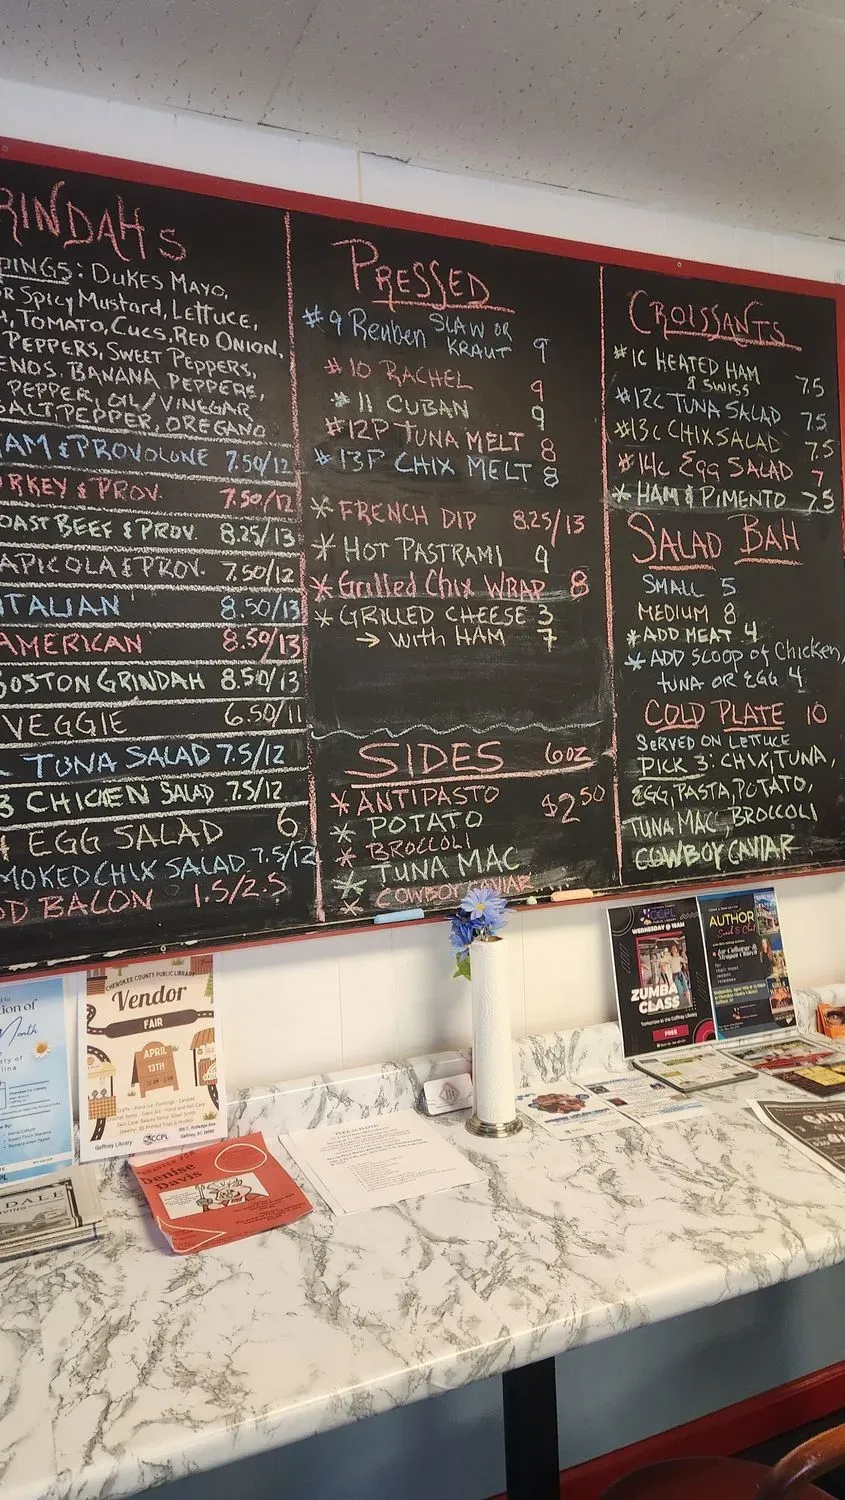 RINDAHS
PINGS: DUKES MAYO,
OR SPICY MUSTARD, LETTUCE,
H, TOMATO, CUCS, RED ONION,
PEPPERS, SWEET PEPPERS,
ENOS. BANANA PEPPERS,
PEPPER, OIL/VINEGAR
SALT, PEPPER, OREGANO
HAM & PROVOLONE 7.50/12
URKEY & PROV. 7.50/12
OAST BEEF & PROV. 8.25/13
APICOLA & PROV. 7.50/12
ITALIAN 8.50/13
AMERICAN 8.50/13
BOSTON GRINDAH 8.50/13
VEGGIE 6.50/11
TUNA SALAD 7.5/12
3 CHICKEN SALAD 7.5/12
EGG SALAD 6
MOKED CHIX SALAD 7.5/12
DD BACON 1.5/2.5
PRESSED
#9 Reuben SLAW OR
KRAUT 9
#10 RACHEL 9
#11 CUBAN 9
#12P TUNA MELT 8
#13P CHIX MELT 8
* FRENCH DIP 8.25/13
* HOT PASTRAMI 9
* Grilled Chix WRAP 8
* GRILLED CHEESE 3
→ with HAM 7
SIDES 6OZ
* ANTIPASTO $2.50
* POTATO
* BROCCOLI
* TUNA MAC
* COWBOY CAVIAR
CROISSANTS
#1C HEATED HAM
& SWISS 7.5
#12C TUNA SALAD 7.5
#13C CHIX SALAD 7.5
#14C Egg SALAD 7
* HAM & PIMENTO 7.5
SALAD BAH
SMALL 5
MEDIUM 8
* ADD MEAT 4
* ADD SCOOP of Chicken,
TUNA OR EGG 4
COLD PLATE 10
SERVED ON LETTUCE
PICK 3: CHIX, TUNA,
EGG, PASTA, POTATO,
TUNA MAC, BROCCOLI
COWBOY CAVIAR
CHEROKEE COUNTY PUBLIC LIBRARY
Vendor
FAIR
APRIL
13TH
Gaffney Library
CCPL
Denise
Davis
CCPL
WEDNESDAY @ 10AM
ZUMBA
CLASS
FREE
AUTHOR
Month
DALE